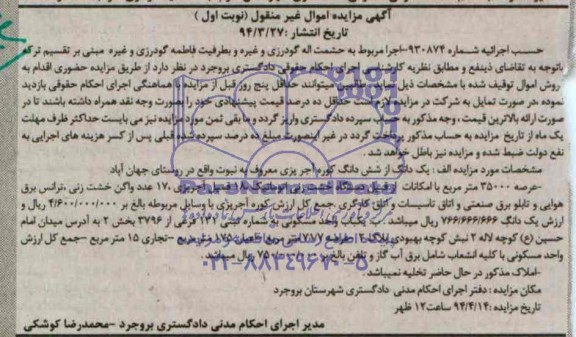 آگهی مزایده اموال غیر منقول (نوبت اول )
تاریخ انتشار :۹۴/۳/۲۷
حسب اجرائیه شماره ۹۳۰۸۷۴-اجرا مربوط به حشمت اله گودرزی و غیره و بطرفیت فاطمه گودرزی و غیره مبنی بر تقسیم ترکه
باتوجه به تقاضای ذینفع و مطابق نظریه کارشناس اجرای احکام حقوقی دادگستری بروجرد در نظر دارد از طریق مزایده حضوری اقدام به
روش اموال توقیف شده با مشخصات ذیل نماید طالبین میتوانند حداقل پنج روز قبل از مزایده با هماهنگی اجرای احکام حقوقی بازدید
نموده ،در صورت تمایل به شرکت در مزایده لازمست حداقل ده درصد قیمت پیشنهادی خود را بصورت وجه نقد همراه داشته باشند تا در
صورت ارائه بالاترین قیمت ، وجه مذکور به حساب سپرده دادگستری واریز گردد و ما بقی ثمن مورد مزایده نیز می بایست حداکثر ظرف مهلت
یک ماه از تاریخ مزایده به حساب مذکور پرداخت گردد در غیر اینصورت مبلغ ده درصد سپرده شده قبلی پس از کسر هزینه های اجرایی به
نفع دولت ضبط شده و مزایده نیز باطل خواهد شد .
مشخصات مورد مزایده الف : یک دانگ از شش دانگ کوره آجر پزی معروف به نبوت واقع در روستای جهان آباد
-عرصه ۳۵۰۰۰ متر مربع با امکانات دستگاه خشت زنی اتوماتیک ۱۸ آجرپزی ۱۷۰ عدد واگن خشت زنی ،ترانس برق
هوایی و تابلو برق صنعتی و اتاق تاسیسات و اتاق کارگری .جمع کل ارزش کوره آجرپزی با وسایل مربوطه بالغ بر ۴/۶۰۰/۰۰۰/۰۰۰ ریال و
ارزش یک دانگ ۷۶۶/۶۶۶/۶۶۶ ریال میباشد . ب: یکباب واحد مسکونی به شماره ثبتی ۱۲۱ فرعی از ۳۷۹۶ بخش ۲ به آدرس میدان امام
حسین (ع) کوچه لاله ۲ نبش کوچه بهبودی متر مربع ۱۷۵ متر مربع -تجاری ۱۵ متر مربع -جمع کل ارزش
واحد مسکونی با کلیه انشعاب شامل برق آب گاز و تلفن بالغ بر ریال میباشد
-املاک مذکور در حال حاضر تخلیه نمیباشد .
مکان مزایده : دفتر اجرای احکام مدنی دادگستری شهرستان بروجرد
تاریخ مزایده :۹۴/۴/۱۴ ساعت۱۲ ظهر
مدیر اجرای احکام مدنی دادگستری بروجرد -محمدرضا کوشکی
۰۲۱-۸۸۳۴۹۶۷۰-۵